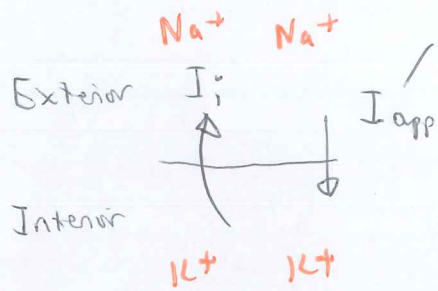 Na+ Na+
Exterior Ii Iapp
Interior
K+ K+